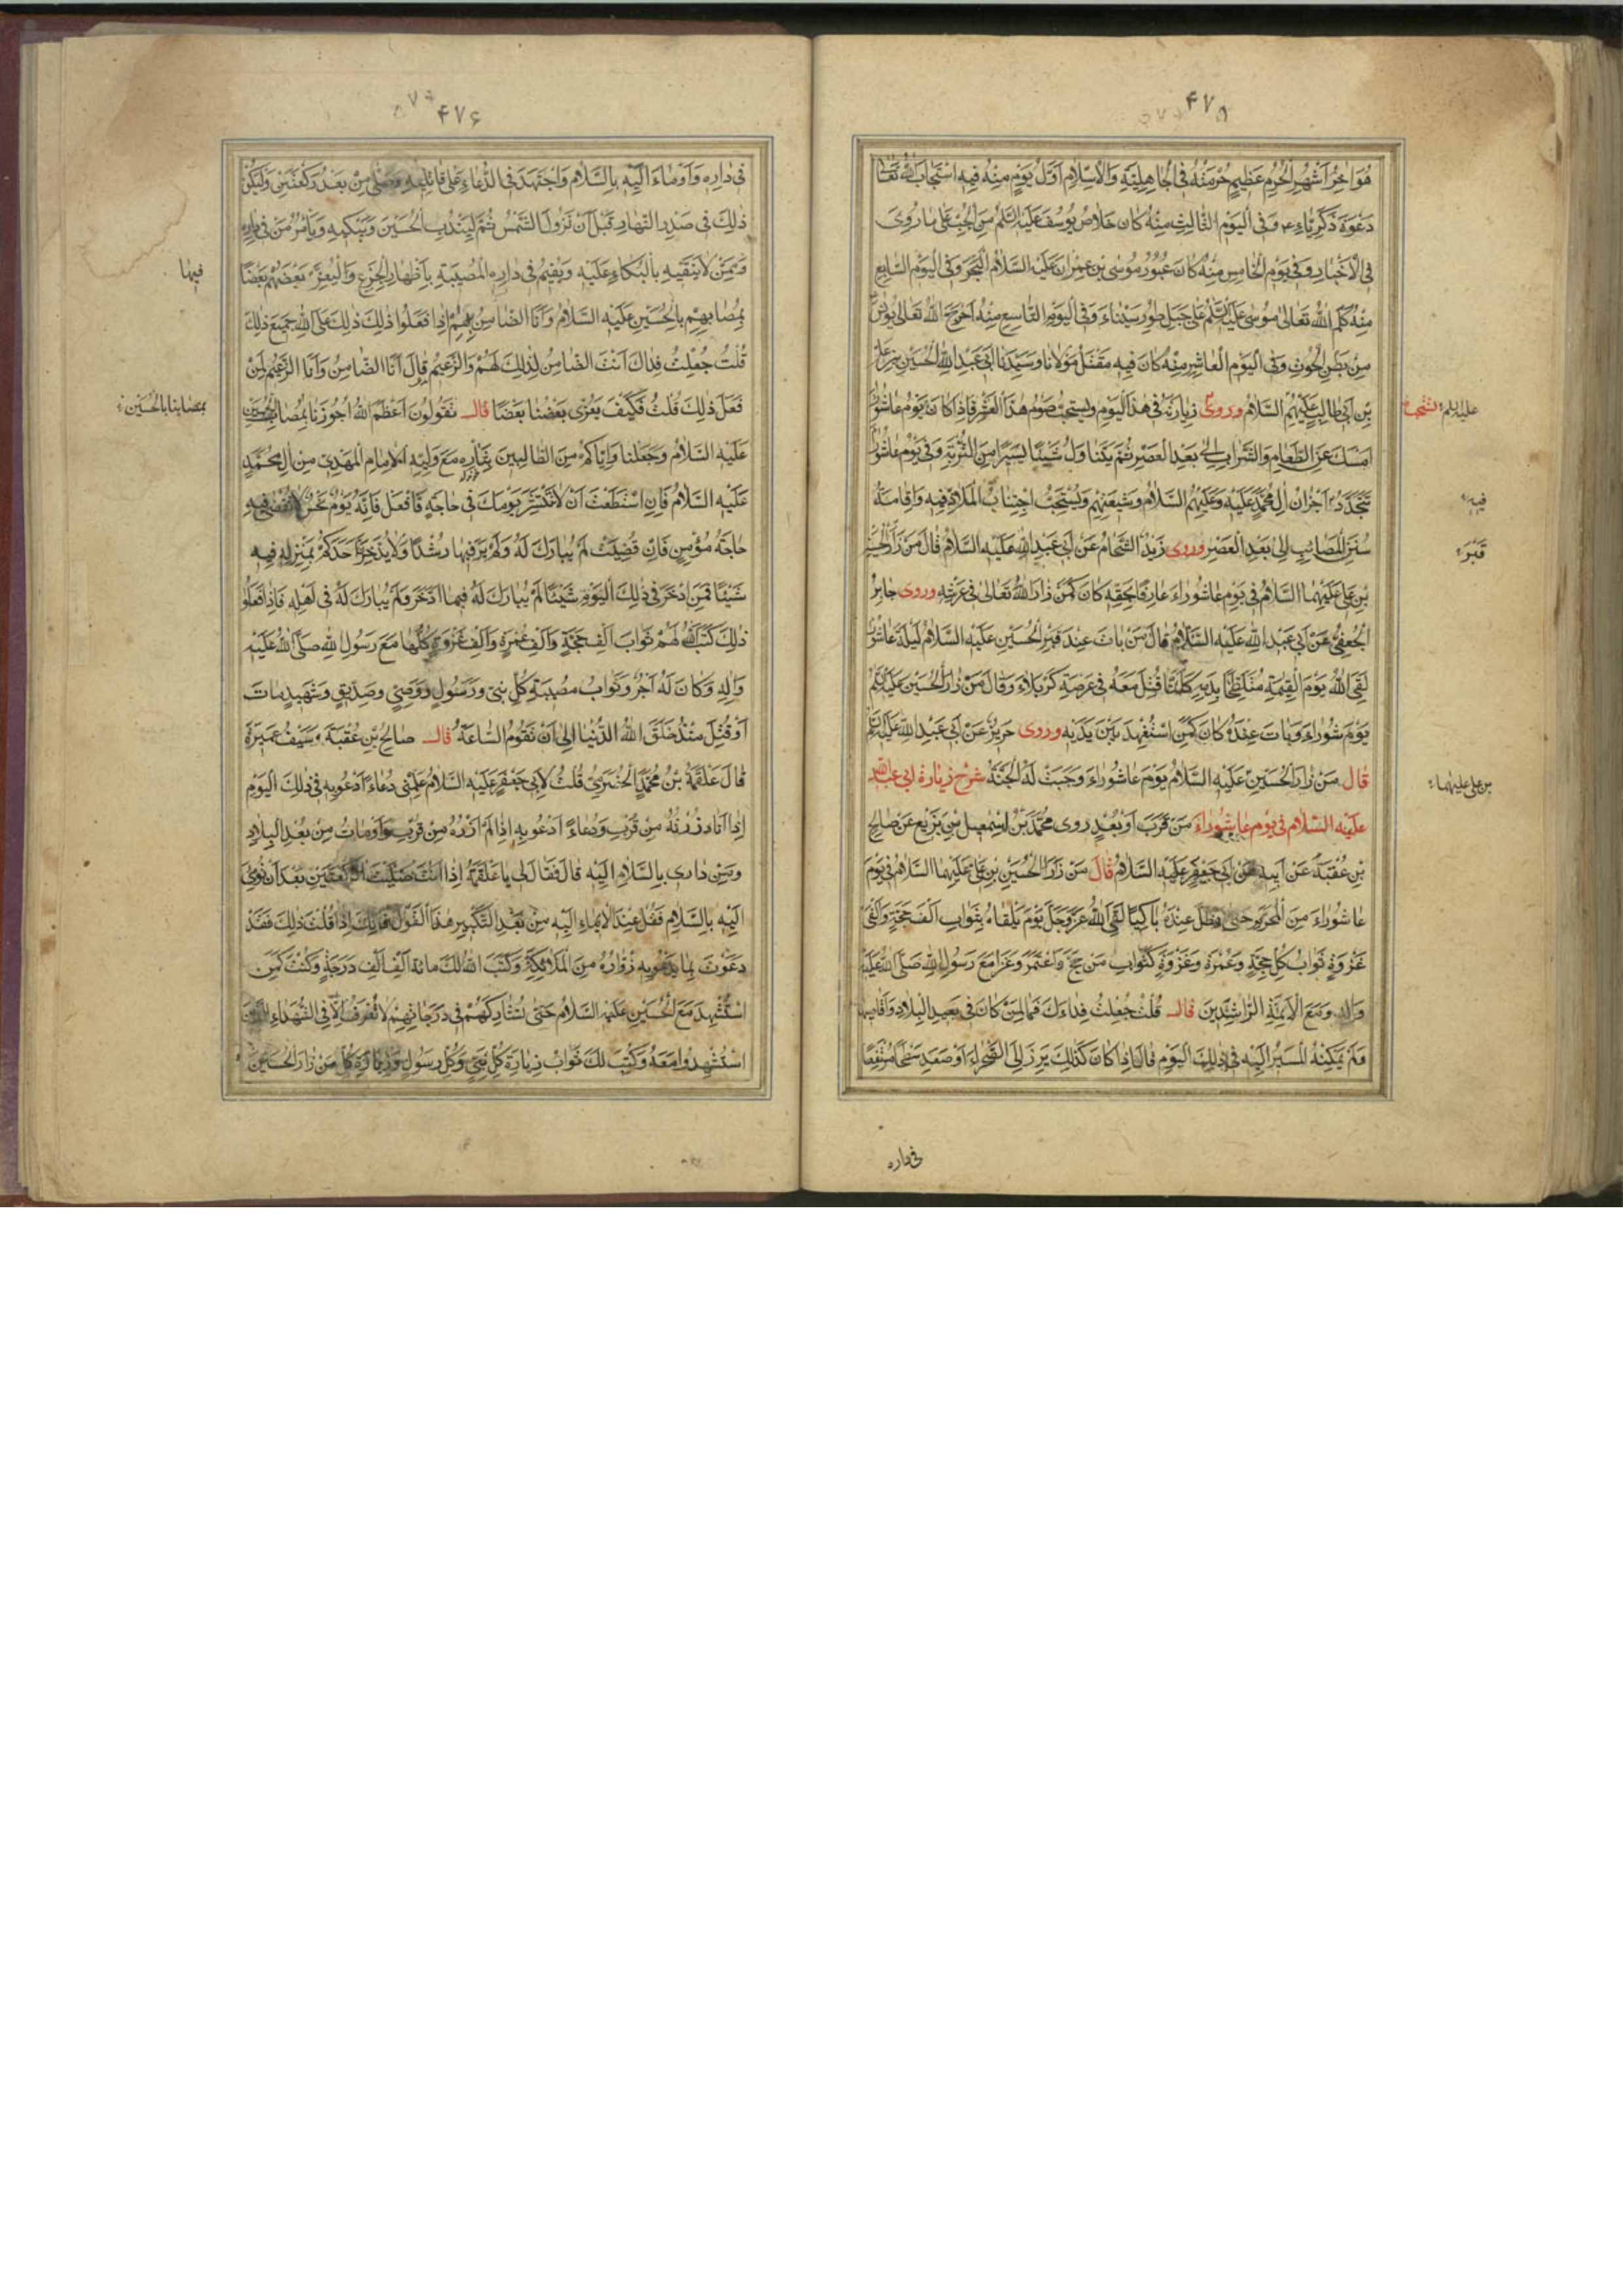 ۴۷۵
هُوَ اٰخِرُ اَشْهُرِ الْحُرُمِ عَظِيمٌ حُرْمَتُهُ فِى الْجَاهِلِيَّةِ وَالْاِسْلَامِ اَوَّلُ يَوْمٍ مِنْهُ فِيهِ اسْتَجَابَ اللهُ تَعَالٰى
دَعْوَةَ ذَكَرِيَّاءَ ع وَفِى الْيَوْمِ الثَّالِثِ مِنْهُ كَانَ خَلَاصُ يُوسُفَ عَلَيْهِ السَّلَمُ مِنَ الْجُبِّ عَلٰى مَا رُوِىَ
فِى الْاَخْبَارِ وَفِى يَوْمِ الْخَامِسِ مِنْهُ كَانَ عُبُورُ مُوسٰى بْنِ عِمْرَانَ عَلَيْهِ السَّلَامُ الْبَحْرَ وَفِى الْيَوْمِ السَّابِعِ
مِنْهُ كَلَّمَ اللهُ تَعَالٰى مُوسٰى عَلَيْهِ السَّلَمُ عَلٰى جَبَلِ طُورِ سَيْنَاءَ وَفِى الْيَوْمِ التَّاسِعِ مِنْهُ اَخْرَجَ اللهُ تَعَالٰى يُونُسَ
مِنْ بَطْنِ الْحُوتِ وَفِى الْيَوْمِ الْعَاشِرِ مِنْهُ كَانَ فِيهِ مَقْتَلُ مَوْلَانَا وَسَيِّدِنَا اَبِى عَبْدِ اللهِ الْحُسَيْنِ بْنِ عَلِىِّ
بْنِ اَبِى طَالِبٍ عَلَيْهِمُ السَّلَامُ وروى زِيَارَتُهُ فِى هٰذَا الْيَوْمِ وَيُسْتَحَبُّ صَوْمُ هٰذَا الْعَشْرِ فَاِذَا كَانَ يَوْمُ عَاشُورَاءَ
عليه السلم يستحب
اَمْسَكَ عَنِ الطَّعَامِ وَالشَّرَابِ اِلٰى بَعْدِ الْعَصْرِ ثُمَّ يَتَنَاوَلُ شَيْئًا يَسِيرًا مِنَ التُّرْبَةِ وَفِى يَوْمِ عَاشُورَاءَ
تَتَجَدَّدُ اَحْزَانُ اٰلِ مُحَمَّدٍ عَلَيْهِ وَعَلَيْهِمُ السَّلَامُ وَشِيعَتِهِمْ وَيُسْتَحَبُّ اجْتِنَابُ الْمَلَاذِّ فِيهِ وَاِقَامَةُ
فيه
سُنَنِ الْمَصَائِبِ اِلٰى بَعْدِ الْعَصْرِ وروى زَيْدٌ الشَّحَّامُ عَنْ اَبِى عَبْدِ اللهِ عَلَيْهِ السَّلَامُ قَالَ مَنْ زَارَ الْحُسَيْنَ
قَبْرَ
بْنِ عَلِىٍّ عَلَيْهِمَا السَّلَامُ فِى يَوْمِ عَاشُورَاءَ عَارِفًا بِحَقِّهِ كَانَ كَمَنْ زَارَ اللهَ تَعَالٰى فِى عَرْشِهِ وروى جَابِرٌ
الْجُعْفِىُّ عَنْ اَبِى عَبْدِ اللهِ عَلَيْهِ السَّلَامُ قَالَ مَنْ بَاتَ عِنْدَ قَبْرِ الْحُسَيْنِ عَلَيْهِ السَّلَامُ لَيْلَةَ عَاشُورَاءَ
لَقِىَ اللهَ يَوْمَ الْقِيٰمَةِ مُتَلَطِّخًا بِدَمِهِ كَاَنَّمَا قُتِلَ مَعَهُ فِى عَرْصَةِ كَرْبَلَاءَ وَقَالَ مَنْ زَارَ الْحُسَيْنَ عَلَيْهِ السَّلَمُ
يَوْمَ عَاشُورَاءَ وَبَاتَ عِنْدَهُ كَانَ كَمَنِ اسْتُشْهِدَ بَيْنَ يَدَيْهِ وروى حَرِيزٌ عَنْ اَبِى عَبْدِ اللهِ عَلَيْهِ السَّلَمُ
قال مَنْ زَارَ الْحُسَيْنَ عَلَيْهِ السَّلَامُ يَوْمَ عَاشُورَاءَ وَجَبَتْ لَهُ الْجَنَّةُ شرح زيارة ابى عبد الله
بن على عليهما
عليه السلام فى يوم عاشوراء مَنْ قَرُبَ اَوْ بَعُدَ روى مُحَمَّدُ بْنُ اِسْمٰعِيلَ بْنِ بَزِيعٍ عَنْ صَالِحِ
بْنِ عُقْبَةَ عَنْ اَبِيهِ عَنْ اَبِى جَعْفَرٍ عَلَيْهِ السَّلَامُ قال مَنْ زَارَ الْحُسَيْنَ بْنَ عَلِىٍّ عَلَيْهِمَا السَّلَامُ فِى يَوْمِ
عَاشُورَاءَ مِنَ الْمُحَرَّمِ حَتّٰى يَظَلَّ عِنْدَهُ بَاكِيًا لَقِىَ اللهَ عَزَّ وَجَلَّ يَوْمَ يَلْقَاهُ بِثَوَابِ اَلْفَ حَجَّةٍ وَاَلْفَىْ
غَزْوَةٍ ثَوَابُ كُلِّ حِجَّةٍ وَعُمْرَةٍ وَغَزْوَةٍ كَثَوَابِ مَنْ حَجَّ وَاعْتَمَرَ وَغَزَا مَعَ رَسُولِ اللهِ صَلَّى اللهُ عَلَيْهِ
وَاٰلِهِ وَمَعَ الْاَئِمَّةِ الرَّاشِدِينَ قال قُلْتُ جُعِلْتُ فِدَاءَكَ فَمَا لِمَنْ كَانَ فِى بَعِيدِ الْبِلَادِ وَاَقَاصِيهَا
وَلَمْ يُمْكِنْهُ الْمَسِيرُ اِلَيْهِ فِى ذٰلِكَ الْيَوْمِ قَالَ اِذَا كَانَ كَذٰلِكَ بَرَزَ اِلَى الصَّحْرَاءِ اَوْ صَعِدَ سَطْحًا مُرْتَفِعًا
فى داره
۴۷۶
فِى دَارِهِ وَاَوْمَاءَ اِلَيْهِ بِالسَّلَامِ وَاجْتَهَدَ فِى الدُّعَاءِ عَلٰى قَاتِلِهِ وَصَلّٰى مِنْ بَعْدُ رَكْعَتَيْنِ وَلْيَكُنْ
ذٰلِكَ فِى صَدْرِ النَّهَارِ قَبْلَ اَنْ تَزُولَ الشَّمْسُ ثُمَّ لْيَنْدُبِ الْحُسَيْنَ وَيَبْكِيهِ وَيَأْمُرُ مَنْ فِى دَارِهِ
مِمَّنْ لَا يَتَّقِيهِ بِالْبُكَاءِ عَلَيْهِ وَيُقِيمُ فِى دَارِهِ الْمُصِيبَةَ بِاِظْهَارِ الْجَزَعِ وَالْيُعَزِّ بَعْضُهُمْ بَعْضًا
فيها
بِمُصَابِهِمْ بِالْحُسَيْنِ عَلَيْهِ السَّلَامُ وَاَنَا الضَّامِنُ لَهُمْ اِذَا فَعَلُوا ذٰلِكَ عَلَى اللهِ جَمِيعَ ذٰلِكَ
قُلْتُ جُعِلْتُ فِدَاكَ اَنْتَ الضَّامِنُ لِذٰلِكَ لَهُمْ وَالزَّعِيمُ قَالَ اَنَا الضَّامِنُ وَاَنَا الزَّعِيمُ لِمَنْ
فَعَلَ ذٰلِكَ قُلْتُ فَكَيْفَ يُعَزِّى بَعْضُنَا بَعْضًا قال تَقُولُونَ اَعْظَمَ اللهُ اُجُورَنَا بِمُصَابِ الْحُسَيْنِ
بمصابنا بالحسين
عَلَيْهِ السَّلَامُ وَجَعَلَنَا وَاِيَّاكُمْ مِنَ الطَّالِبِينَ بِثَارِهِ مَعَ وَلِيِّهِ الْاِمَامِ الْمَهْدِىِّ مِنْ اٰلِ مُحَمَّدٍ
عَلَيْهِ السَّلَامُ فَاِنِ اسْتَطَعْتَ اَنْ لَا تَنْتَشِرَ يَوْمَكَ فِى حَاجَةٍ فَافْعَلْ فَاِنَّهُ يَوْمُ نَحْسٍ لَا تُقْضٰى فِيهِ
حَاجَةُ مُؤْمِنٍ فَاِنْ قُضِيَتْ لَمْ يُبَارَكْ لَهُ وَلَمْ يَرَ فِيهَا رُشْدًا وَلَا يَدَّخِرَنَّ اَحَدُكُمْ بِمَنْزِلِهِ فِيهِ
شَيْئًا فَمَنِ ادَّخَرَ فِى ذٰلِكَ الْيَوْمِ شَيْئًا لَمْ يُبَارَكْ لَهُ فِيمَا ادَّخَرَ وَلَمْ يُبَارَكْ لَهُ فِى اَهْلِهِ فَاِذَا فَعَلُوا
ذٰلِكَ كَتَبَ اللهُ لَهُمْ ثَوَابَ اَلْفِ حَجَّةٍ وَاَلْفِ عُمْرَةٍ وَاَلْفِ غَزْوَةٍ كُلُّهَا مَعَ رَسُولِ اللهِ صَلَّى اللهُ عَلَيْهِ
وَاٰلِهِ وَكَانَ لَهُ اَجْرُ وَثَوَابُ مُصِيبَةِ كُلِّ نَبِىٍّ وَرَسُولٍ وَوَصِىٍّ وَصِدِّيقٍ وَشَهِيدٍ مَاتَ
اَوْ قُتِلَ مُنْذُ خَلَقَ اللهُ الدُّنْيَا اِلٰى اَنْ تَقُومَ السَّاعَةُ قال صَالِحُ بْنُ عُقْبَةَ وَسَيْفُ عَمِيرَةَ
قَالَ عَلْقَمَةُ بْنُ مُحَمَّدٍ الْحَضْرَمِىُّ قُلْتُ لِاَبِى جَعْفَرٍ عَلَيْهِ السَّلَامُ عَلِّمْنِى دُعَاءً اَدْعُو بِهِ فِى ذٰلِكَ الْيَوْمِ
اِذَا اَنَا زُرْتُهُ مِنْ قُرْبٍ وَدُعَاءً اَدْعُو بِهِ اِذَا لَمْ اَزُرْهُ مِنْ قُرْبٍ وَاَوْمَاْتُ مِنْ بُعْدِ الْبِلَادِ
وَمِنْ دَارِى بِالسَّلَامِ اِلَيْهِ قَالَ فَقَالَ لِى يَا عَلْقَمَةُ اِذَا اَنْتَ صَلَّيْتَ الرَّكْعَتَيْنِ بَعْدَ اَنْ تُومِىَ
اِلَيْهِ بِالسَّلَامِ فَقُلْ عِنْدَ الْاِيمَاءِ اِلَيْهِ مِنْ بَعْدِ التَّكْبِيرِ هٰذَا الْقَوْلَ فَاِنَّكَ اِذَا قُلْتَ ذٰلِكَ فَقَدْ
دَعَوْتَ بِمَا يَدْعُو بِهِ زُوَّارُهُ مِنَ الْمَلَائِكَةِ وَكَتَبَ اللهُ لَكَ مِائَةَ اَلْفِ اَلْفِ دَرَجَةٍ وَكُنْتَ كَمَنِ
اسْتُشْهِدَ مَعَ الْحُسَيْنِ عَلَيْهِ السَّلَامُ حَتّٰى تُشَارِكَهُمْ فِى دَرَجَاتِهِمْ لَا تُعْرَفُ اِلَّا فِى الشُّهَدَاءِ الَّذِينَ
اسْتُشْهِدُوا مَعَهُ وَكُتِبَ لَكَ ثَوَابُ زِيَارَةِ كُلِّ نَبِىٍّ وَكُلِّ رَسُولٍ وَزِيَارَةِ كُلِّ مَنْ زَارَ الْحُسَيْنَ